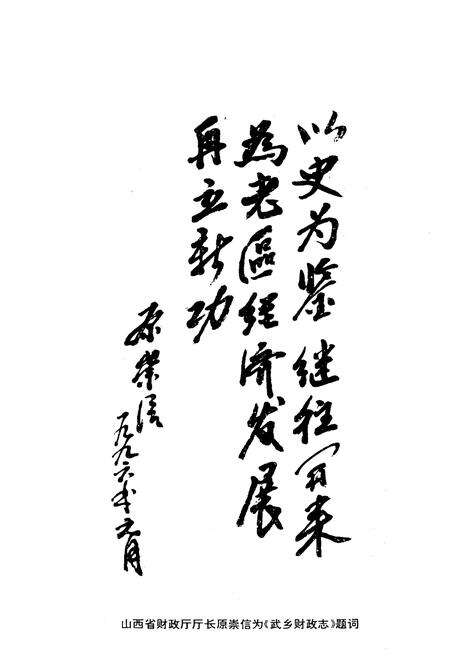 以史为鉴继往开来
为老區经济发展
再立新功
原崇信
一九九六年元月
山西省财政厅厅长原崇信为《武乡财政志》题词